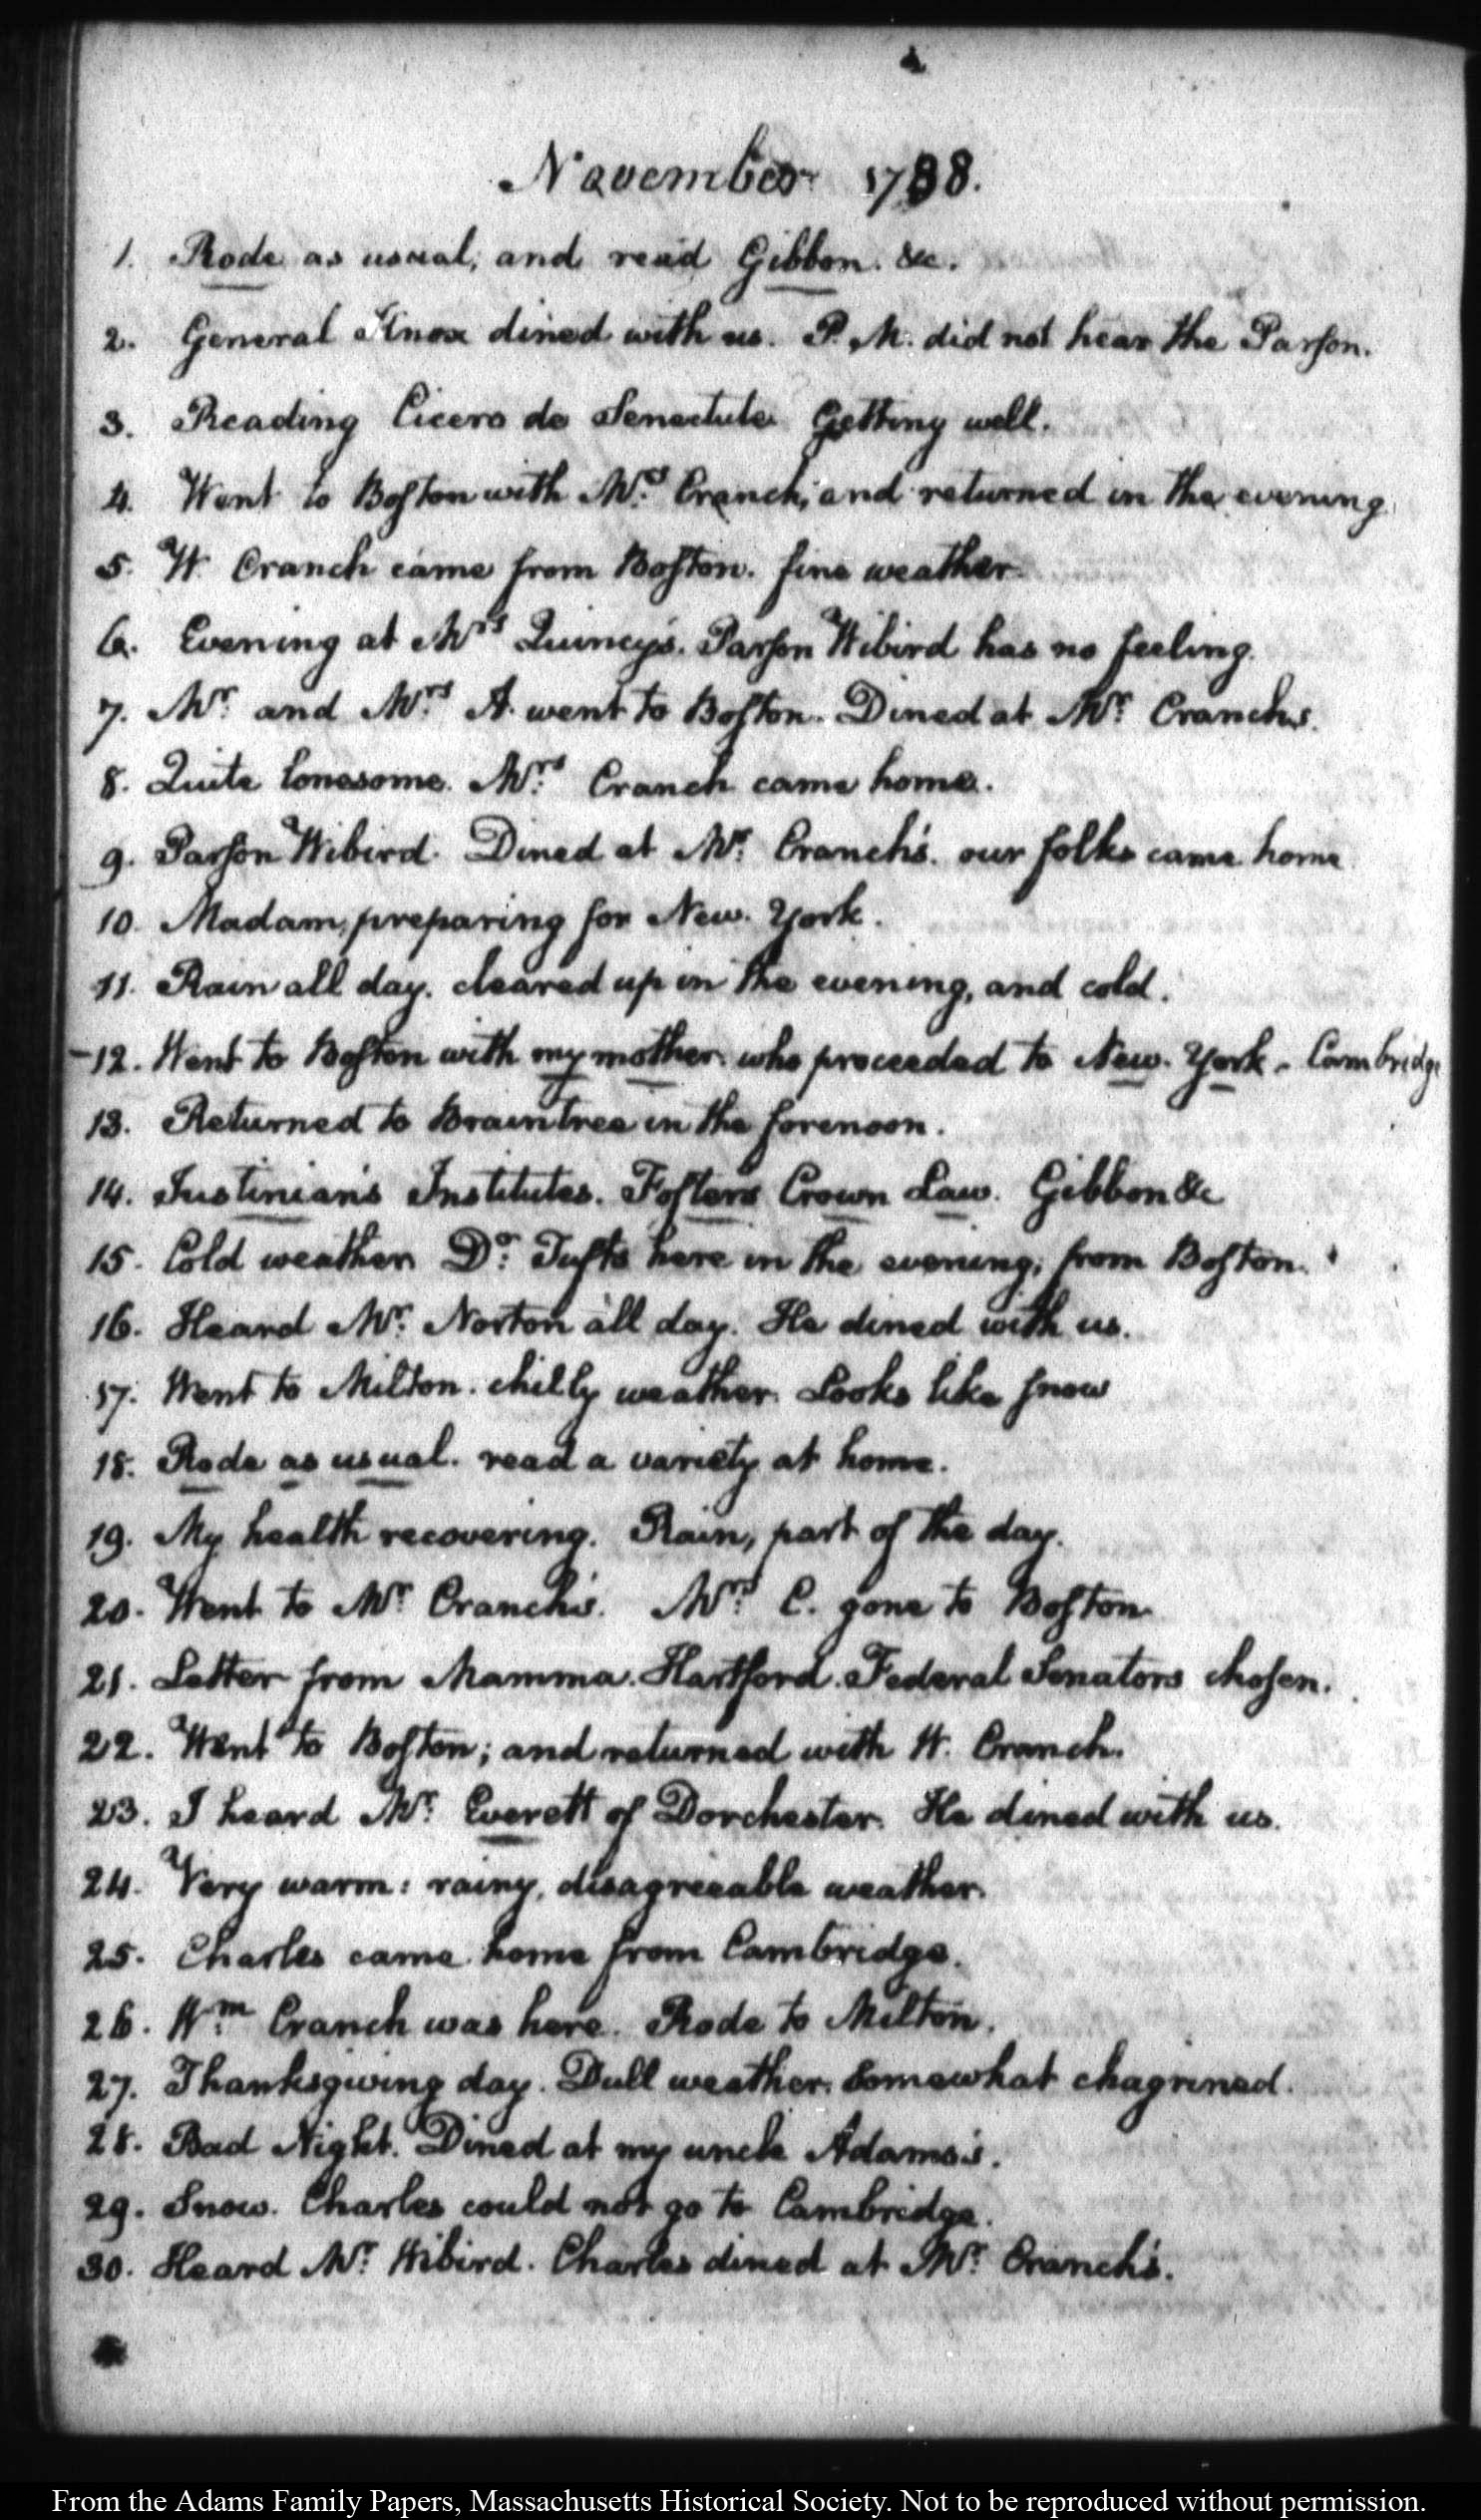 November 1788.
1. Rode as usual, and read Gibbon. &c.
2. General Knox dined with us. P. M. did not hear the Parson.
3. Reading Cicero de Senectute. Getting well.
4. Went to Boston with Mrs. Cranch, and returned in the evening.
5. W. Cranch came from Boston. fine weather.
6. Evening at Mrs. Quincy's. Parson Wibird has no feeling.
7. Mr. and Mrs. A. went to Boston. Dined at Mr. Cranchs.
8. Quite lonesome. Mrs. Cranch came home.
9. Parson Wibird. Dined at Mr. Cranch's. our folks came home
10. Madam, preparing for New. York.
11. Rain all day. cleared up in the evening, and cold.
12. Went to Boston with my mother. who proceeded to New. York. Cambridge
13. Returned to Braintree in the forenoon.
14. Justinian's Institutes. Foster's Crown Law. Gibbon &c
15. Cold weather. Dr. Tufts here in the evening, from Boston.
16. Heard Mr. Norton all day. He dined with us.
17. Went to Milton. chilly weather. Looks like snow
18. Rode as usual. read a variety at home.
19. My health recovering. Rain, part of the day.
20. Went to Mr. Cranch's. Mrs. C. gone to Boston.
21. Letter from Mamma. Hartford. Federal Senators chosen.
22. Went to Boston; and returned with W. Cranch.
23. I heard Mr. Everett of Dorchester. He dined with us.
24. Very warm: rainy, disagreeable weather.
25. Charles came home from Cambridge.
26. Wm. Cranch was here. Rode to Milton.
27. Thanksgiving day. Dull weather. Somewhat chagrined.
28. Bad Night. Dined at my uncle Adams's.
29. Snow. Charles could not go to Cambridge.
30. Heard Mr. Wibird. Charles dined at Mr. Cranch's.
From the Adams Family Papers, Massachusetts Historical Society. Not to be reproduced without permission.